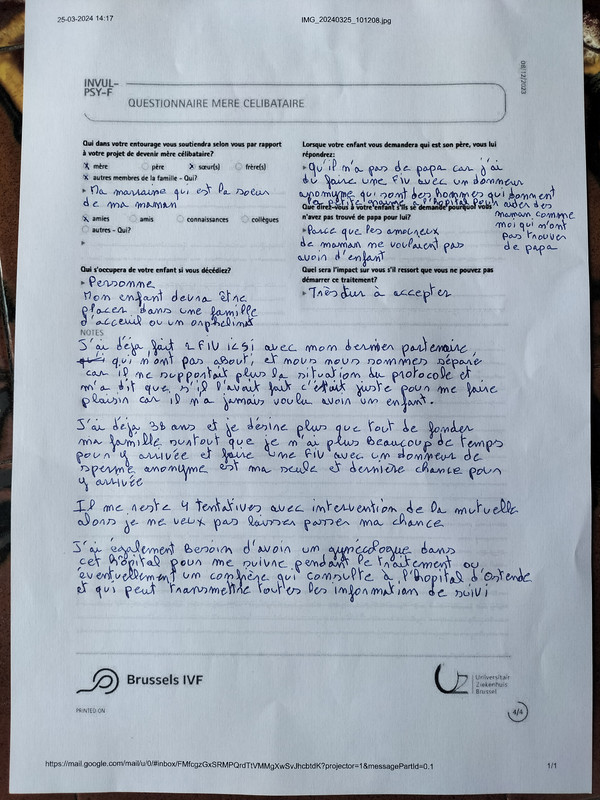 25-03-2024 14:17
IMG_20240325_101208.jpg
08/12/2023
INVUL-
PSY-F
QUESTIONNAIRE MERE CELIBATAIRE
Qui dans votre entourage vous soutiendra selon vous par rapport
à votre projet de devenir mère célibataire?
x mère père x sœur(s) frère(s)
x autres membres de la famille - Qui?
Ma marraine qui est la soeur
de ma maman
x amies amis connaissances collègues
autres - Qui?
Qui s'occupera de votre enfant si vous décédiez?
Personne
Mon enfant devra être
placer dans une famille
d'acceuil ou un orphelinat
Lorsque votre enfant vous demandera qui est son père, vous lui
répondrez:
Qu'il n'a pas de papa car j'ai
du faire une FIV avec un donneur
anonyme qui sont des hommes qui donnent
la petite graine à l'hôpital pour aider des
maman comme
moi qui n'ont
pas trouver
de papa
Que direz-vous à votre enfant s'ils se demande pourquoi vous
n'avez pas trouvé de papa pour lui?
Parce que les amoureux
de maman ne voulaient pas
avoir d'enfant
Quel sera l'impact sur vous s'il ressort que vous ne pouvez pas
démarrer ce traitement?
Très dur à accepter
NOTES
J'ai déja fait 2 FIV ICSI avec mon dernier partenaire
qui n'ont pas about, et nous nous sommes séparé
car il ne supportait plus la situation du protocole et
m'a dit que s'il l'avait fait c'était juste pour me faire
plaisir car il n'a jamais voulu avoir un enfant.
J'ai déja 38 ans et je désire plus que tout de fonder
ma famille surtout que je n'ai plus beaucoup de temps
pour y arrivée et faire une FIV avec un donneur de
sperme anonyme est ma seule et dernière chance pour
y arrivée
Il me reste 4 tentatives avec intervention de la mutuelle
alors je ne veux pas laisser passer ma chance
J'ai également besoin d'avoir un gynécologue dans
cet hôpital pour me suivre pendant le traitement ou
éventuellement un confrère qui consulte à l'hopital d'Ostende
et qui peut transmettre toutes les information de suivi
Brussels IVF
Universitair
Ziekenhuis
Brussel
PRINTED ON
4/4
https://mail.google.com/mail/u/0/#inbox/FMfcgzGxSRMPQrdTtVMMgXwSvJhcbtdK?projector=1&messagePartId=0.1
1/1